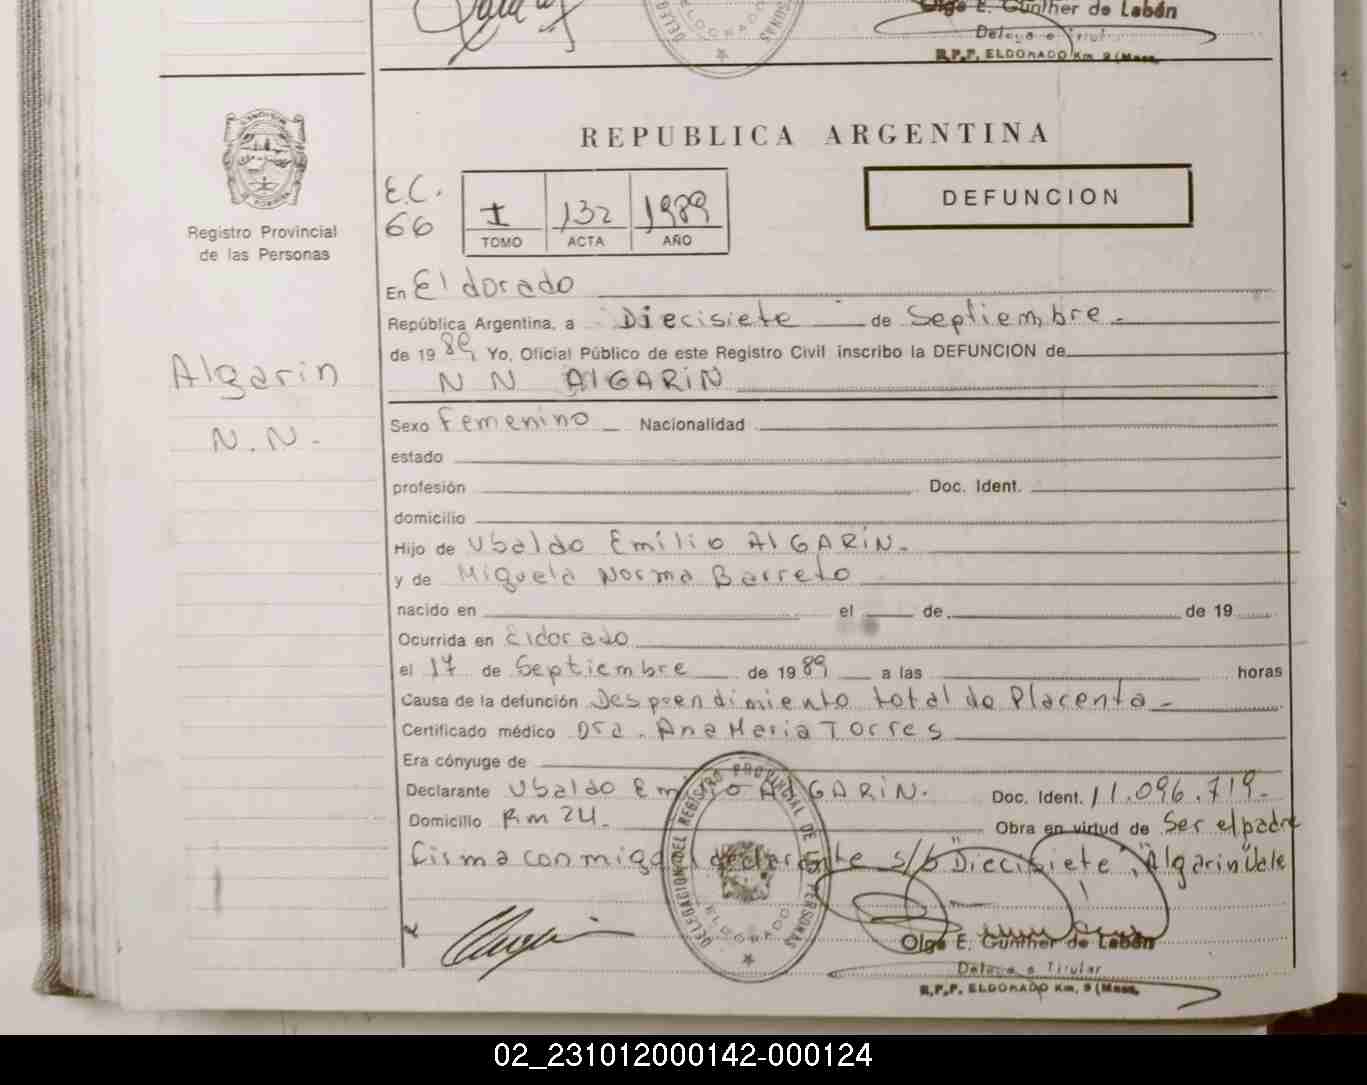 Olga E. Gunther de Labán
Delegada Titular
R.P.P. ELDORADO Km. 9 (Mnes.
ELDORADO
REPUBLICA ARGENTINA
Registro Provincial
de las Personas
E.C.
66
I 132 1989
TOMO ACTA AÑO
DEFUNCION
En Eldorado
República Argentina, a Diecisiete de Septiembre.-
de 1989, Yo, Oficial Público de este Registro Civil inscribo la DEFUNCION de
N N AlGARiN
Algarin
N.N.-
Sexo Femenino Nacionalidad
estado
profesión Doc. Ident.
domicilio
Hijo de Ubaldo Emilio AlGARiN.
y de Miguela Norma Barreto
nacido en el de de 19
Ocurrida en Eldorado
el 17 de Septiembre de 1989 a las horas
Causa de la defunción Desprendimiento total de Placenta-
Certificado médico Dra. Ana Maria Torres
Era cónyuge de
Declarante Ubaldo Emilio AlGARiN. Doc. Ident. 11.096.719-
Domicilio Km 24. Obra en virtud de Ser el padre
firma conmigo el declarante s/b "Diecisiete", "Algarin" Vale
DELEGACION DEL REGISTRO PROVINCIAL DE LAS PERSONAS
ELDORADO
Olga E. Gunther de Labán
Delegada Titular
R.P.P. ELDORADO Km. 9 (Mnes.
02_231012000142-000124